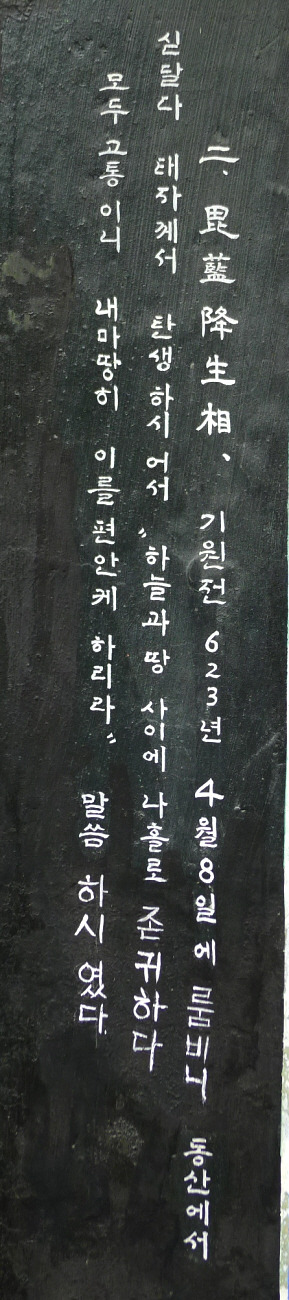 二、毘藍降生相、 기원전 623년 4월8일에 룸비니 동산에서
싣달다 태자께서 탄생하시어서 〝하늘과 땅 사이에 나홀로 존귀하다
모두 고통이니 내마땅히 이를 편안케 하리라〞 말씀 하시였다